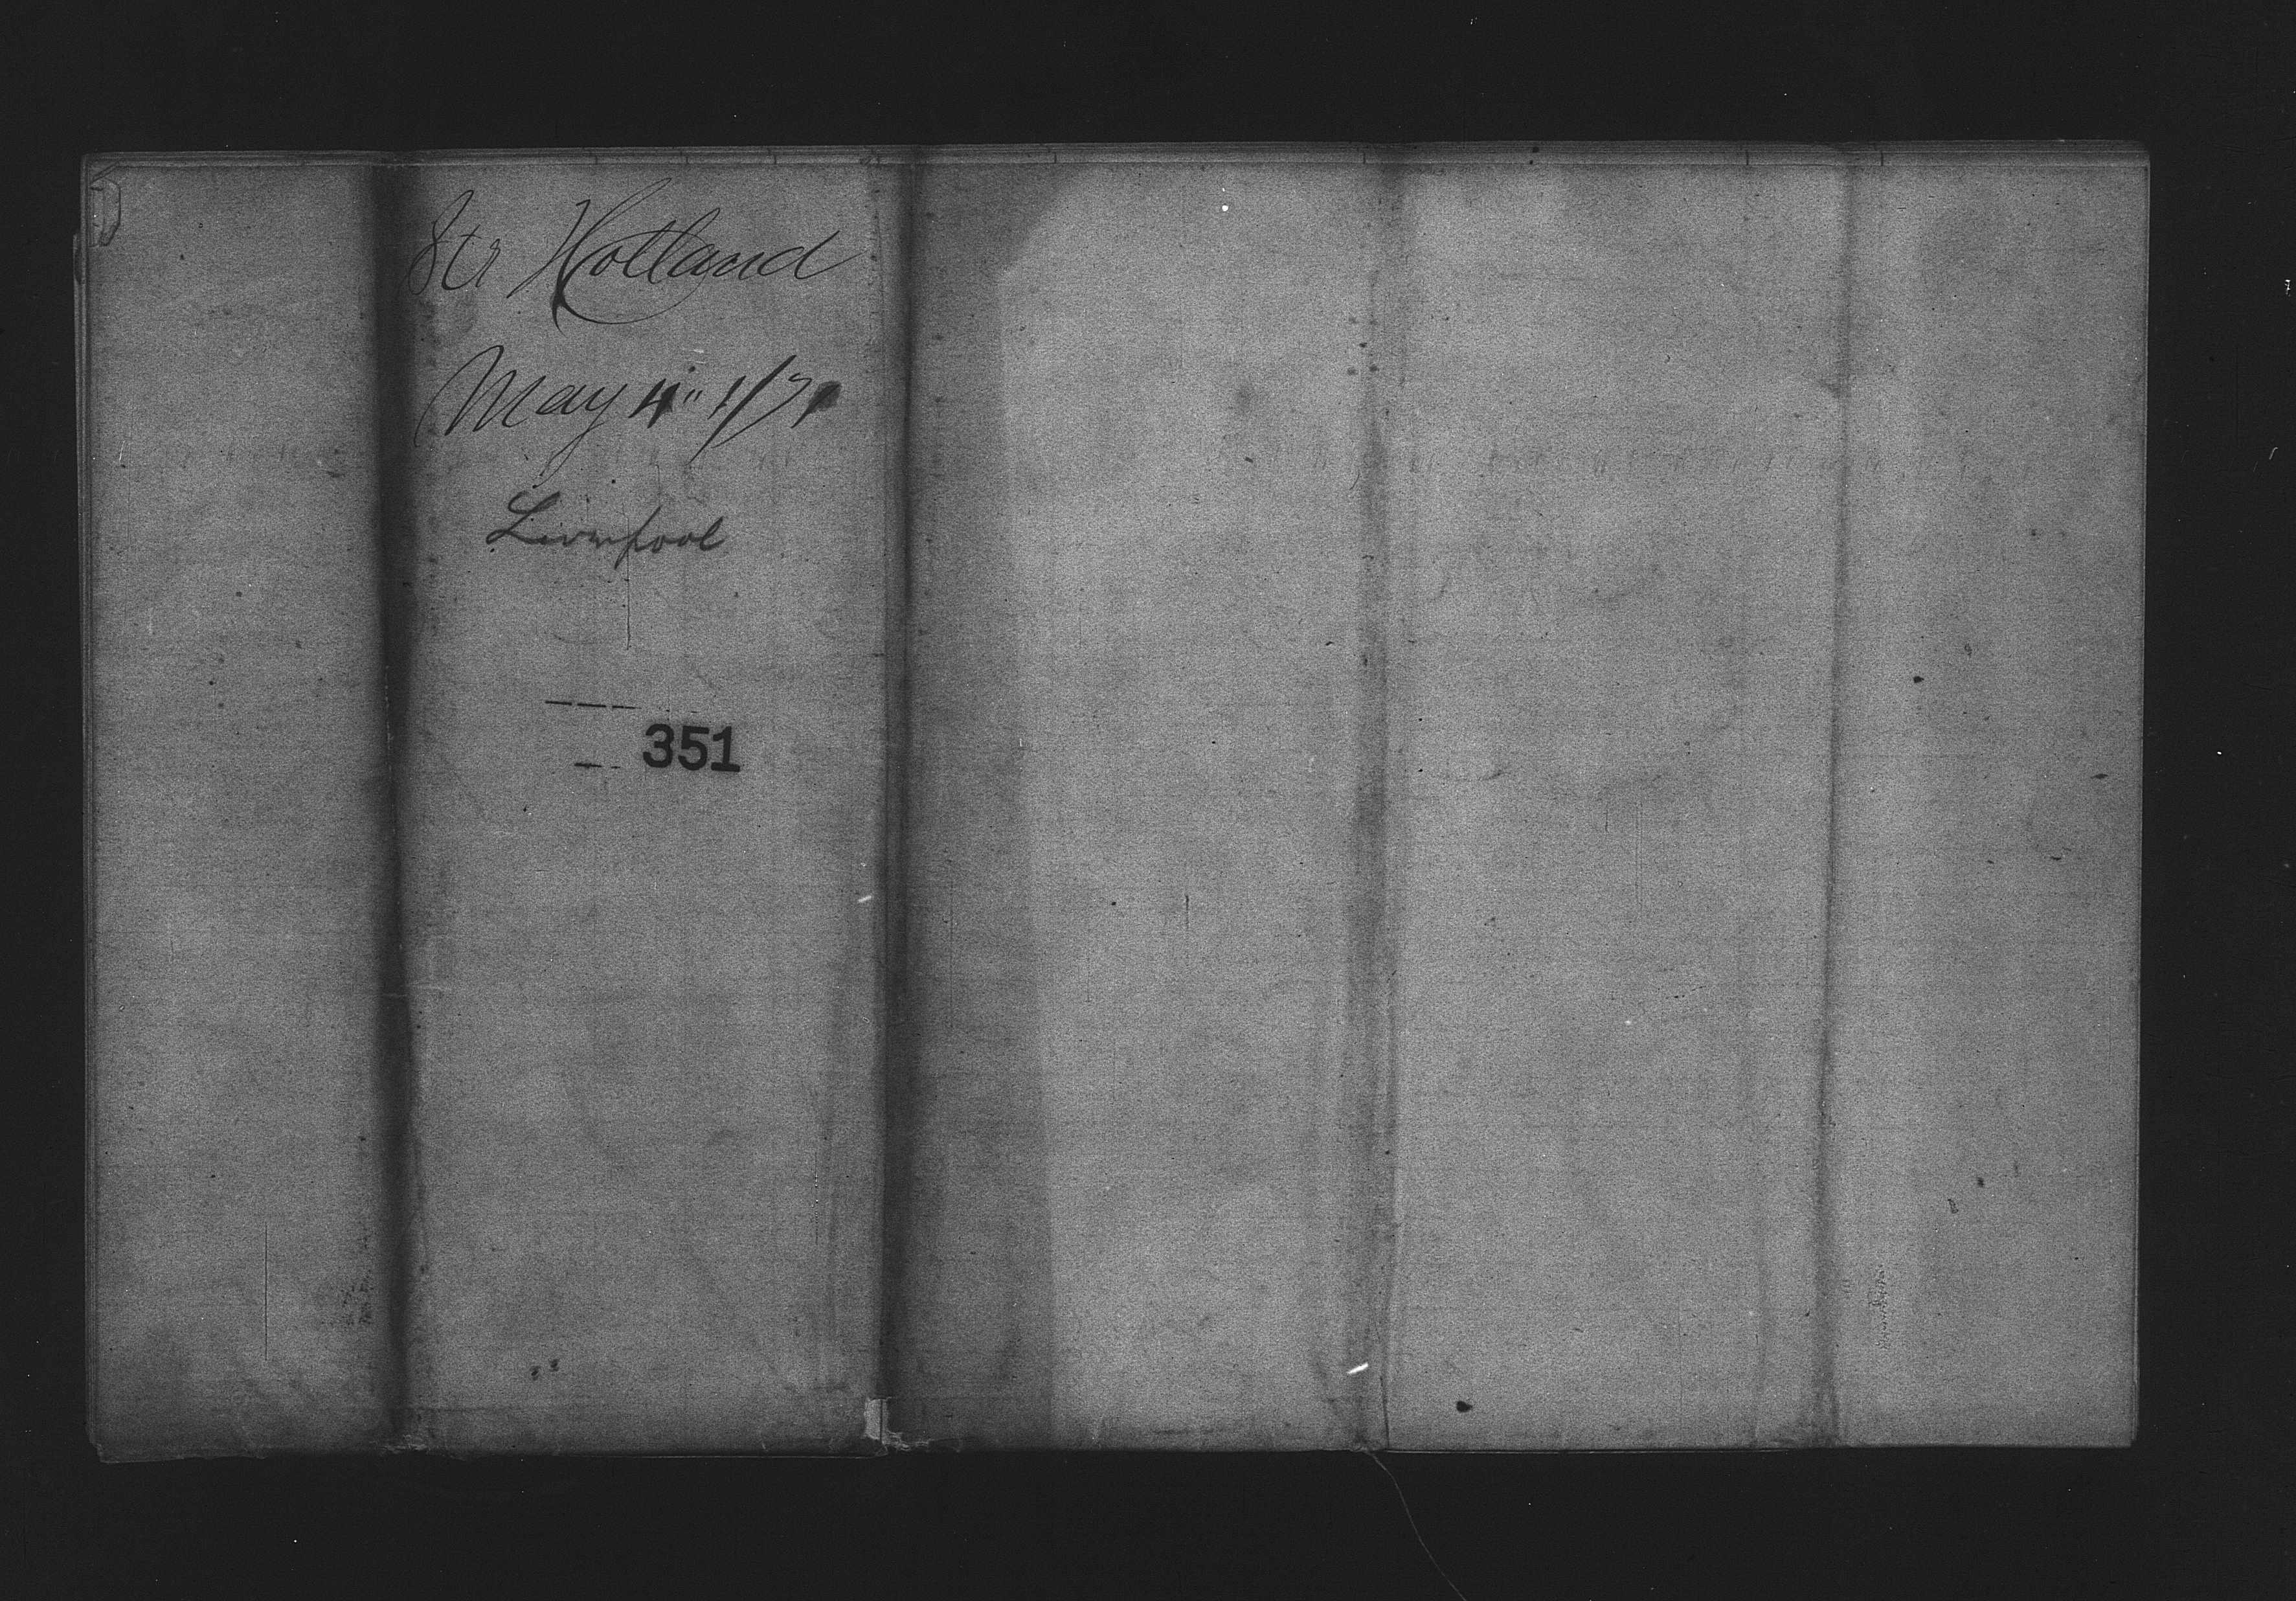 Str Holland
May 4"
Liverpool
351